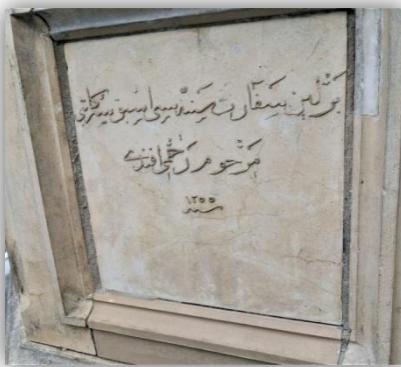 برلين سفارت سنیه سى اسبق سر كاتبى
مرحوم رحمى افندى
سنه ١٢٥٥